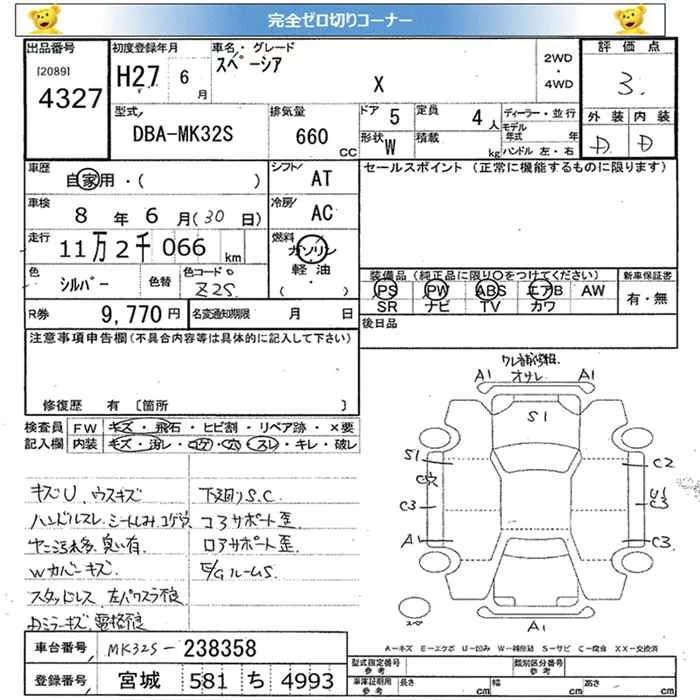 完全ゼロ切りコーナー
出品番号
[2089]
4327
初度登録年月
H27 6 月
車名・グレード
スペーシア
X
2WD
・
4WD
評価点
3.
外装 内装
D D
型式
DBA-MK32S
排気量
660 CC
ドア 5
定員 4 人
形状 W
積載 kg
ディーラー・並行
モデル年式 年
ハンドル 左・右
車歴
自家用・( )
シフト AT
車検
8 年 6 月(30 日)
冷房 AC
走行
11万2千066 km
燃料
ガソリン
軽油
( )
色
シルバー
色替
色コード
Z2S
R券 9,770 円
名変通知期限 月 日
セールスポイント (正常に機能するものに限ります)
装備品 (純正品に限り〇をつけてください)
PS PW ABS エアB AW
SR ナビ TV カワ
新車保証書
有・無
後日品
注意事項申告欄(不具合内容等は具体的に記入して下さい)
修復歴 有 〔箇所 〕
検査員
記入欄
FW キズ・飛石・ヒビ割・リペア跡・×要
内装 キズ・汚レ・コゲ・穴・スレ・キレ・破レ
キズU、ウスキズ
ハンドルスレ、シートしみ、コゲ穴
ヤニ汚れ多、臭い有
Wカバーキズ
スタッドレス 左パワスラ不良
Dミラーキズ、電格不良
下廻りS.C
コアサポート歪
ロアサポート歪
E/GルームS
オサレ
A1 A1
S1
S1
C3
A1
C2
U1
C3
C3
A1
A-キズ E-エクボ U-凹み W-補修跡 S-サビ C-腐食 XX-交換済
車台番号 MK32S-238358
登録番号 宮城 581 ち 4993
型式指定番号
参考
類別区分番号
参考
車庫証明用
参考
長さ cm
幅 cm
高さ cm